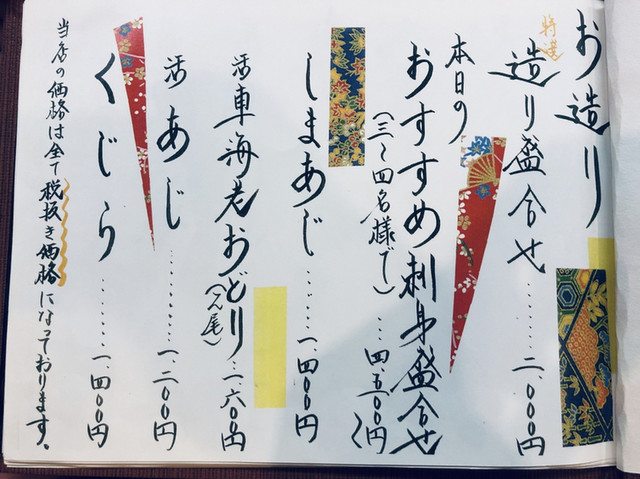 お造り
特選
造り盛合せ……二、〇〇〇円
本日の
おすすめ刺身盛合せ
(三〜四名様で)…四、五〇〇円〜
しまあじ……一、四〇〇円
活車海老おどり(一尾)…一、六〇〇円
活あじ………一、二〇〇円
くじら………一、四〇〇円
当店の価格は全て税抜き価格になっております。